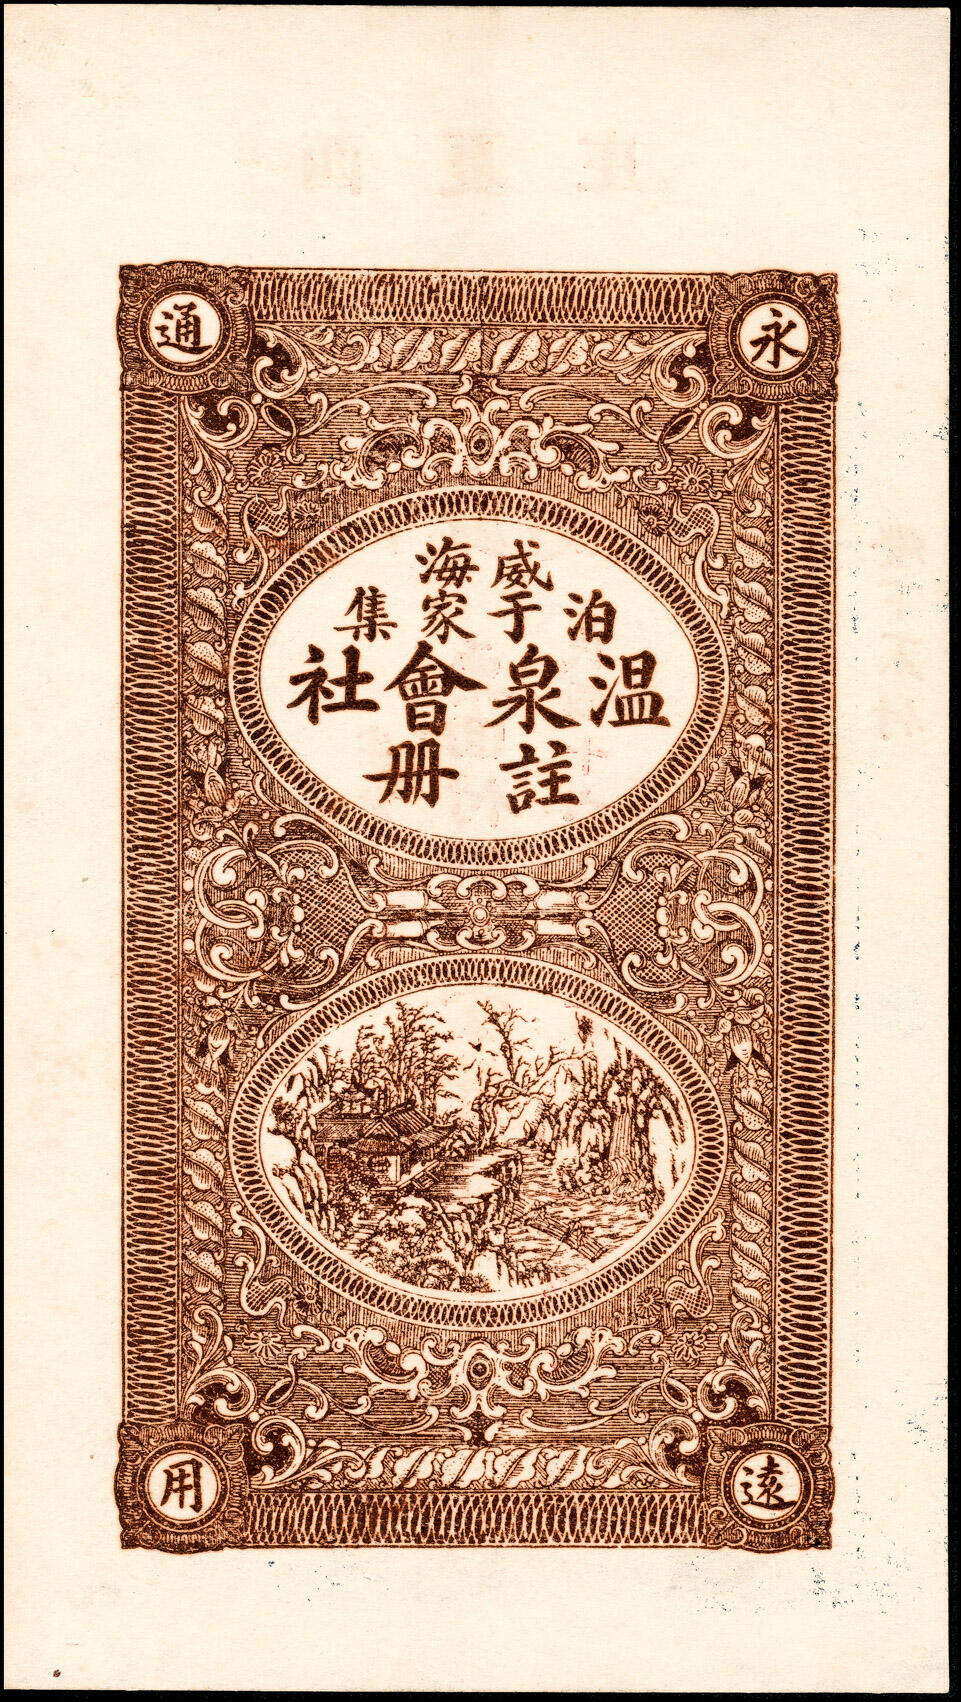 永遠
通用
威海
泊于家集
温泉會社
註册